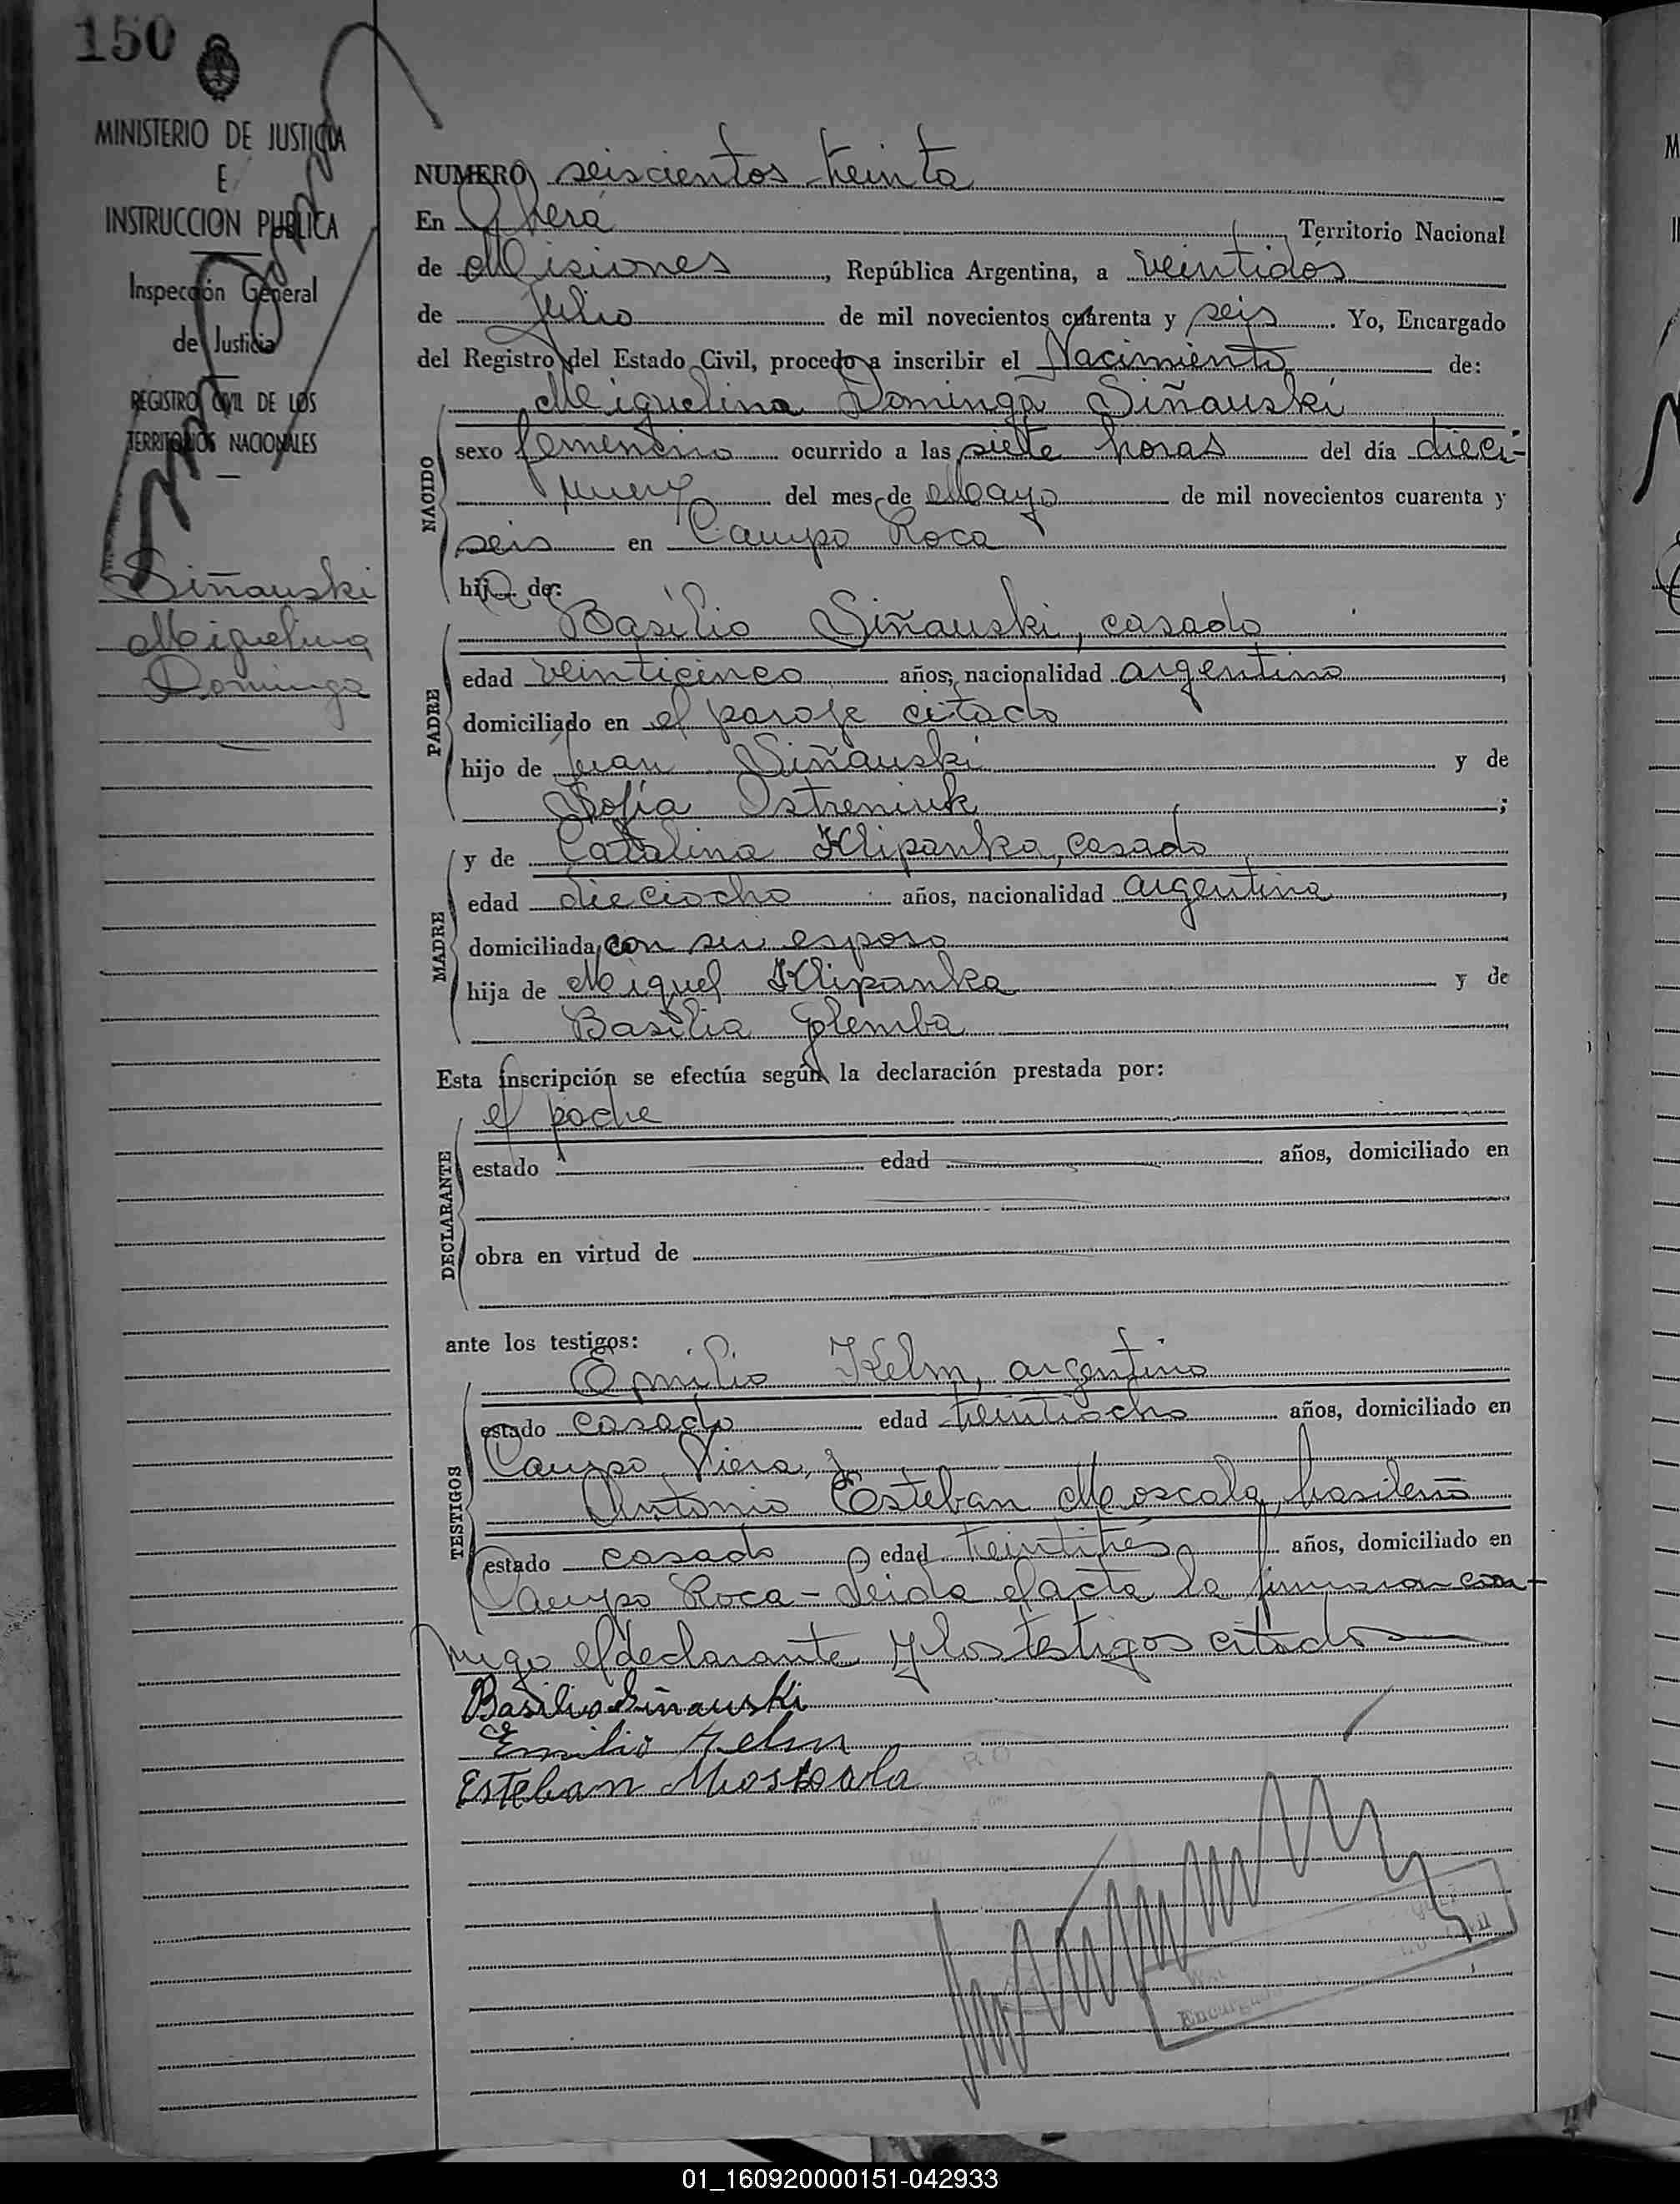 150
MINISTERIO DE JUSTICIA
E
INSTRUCCION PUBLICA
Inspección General
de Justicia
REGISTRO CIVIL DE LOS
TERRITORIOS NACIONALES
Siñauski
Miguelina
Dominga
NUMERO seiscientos treinta
En Oberá Territorio Nacional
de Misiones, República Argentina, a veintidós
de Julio de mil novecientos cuarenta y seis. Yo, Encargado
del Registro del Estado Civil, procedo a inscribir el Nacimiento de:
Miguelina Dominga Siñauski
NACIDO
sexo femenino ocurrido a las siete horas del día dieci-
nueve del mes de Mayo de mil novecientos cuarenta y
seis en Campo Roca
hija de:
Basilio Siñauski, casado
PADRE
edad veinticinco años, nacionalidad argentino,
domiciliado en el paraje citado
hijo de Juan Siñauski y de
Sofía Ostreniuk;
y de Catalina Hlipanka, casada
MADRE
edad dieciocho años, nacionalidad argentina,
domiciliada con su esposo
hija de Miguel Hlipanka y de
Basilia Golemba
Esta inscripción se efectúa según la declaración prestada por:
el padre
DECLARANTE
estado edad años, domiciliado en
obra en virtud de
ante los testigos:
Emilio Kelm, argentino
TESTIGOS
estado casado edad treintiocho años, domiciliado en
Campo Viera, y
Antonio Esteban Moscala, brasileño
estado casado edad treintitrés años, domiciliado en
Campo Roca - Leida el acta la firmaron con-
migo el declarante y los testigos citados
Basilio Siñauski
Emilio Kelm
Esteban
Encargado
01_160920000151-042933